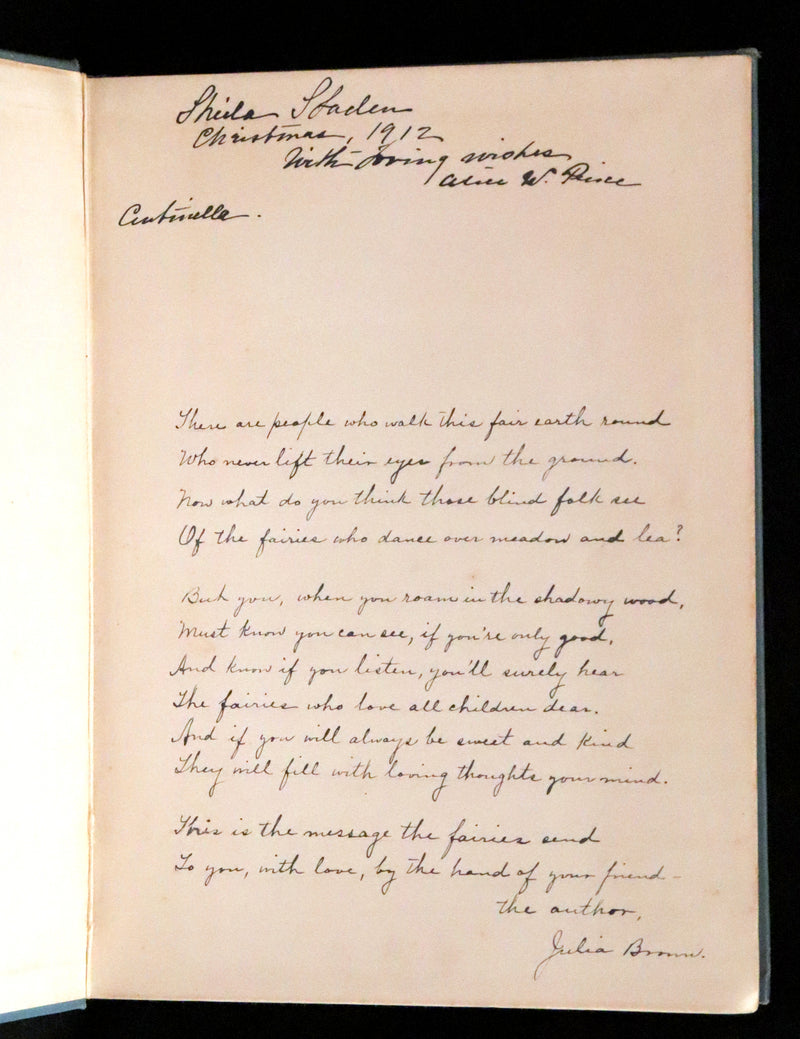 Sheila Staden
Christmas, 1912
With loving wishes
Alice W. Pine
Centinella.
There are people who walk this fair earth round
Who never lift their eyes from the ground.
Now what do you think those blind folk see
Of the fairies who dance over meadow and lea?
But you, when you roam in the shadowy wood,
Must know you can see, if you're only good,
And know if you listen, you'll surely hear
The fairies who love all children dear.
And if you will always be sweet and kind
They will fill with loving thoughts your mind.
This is the message the fairies send
To you, with love, by the hand of your friend -
the author,
Julia Brown.